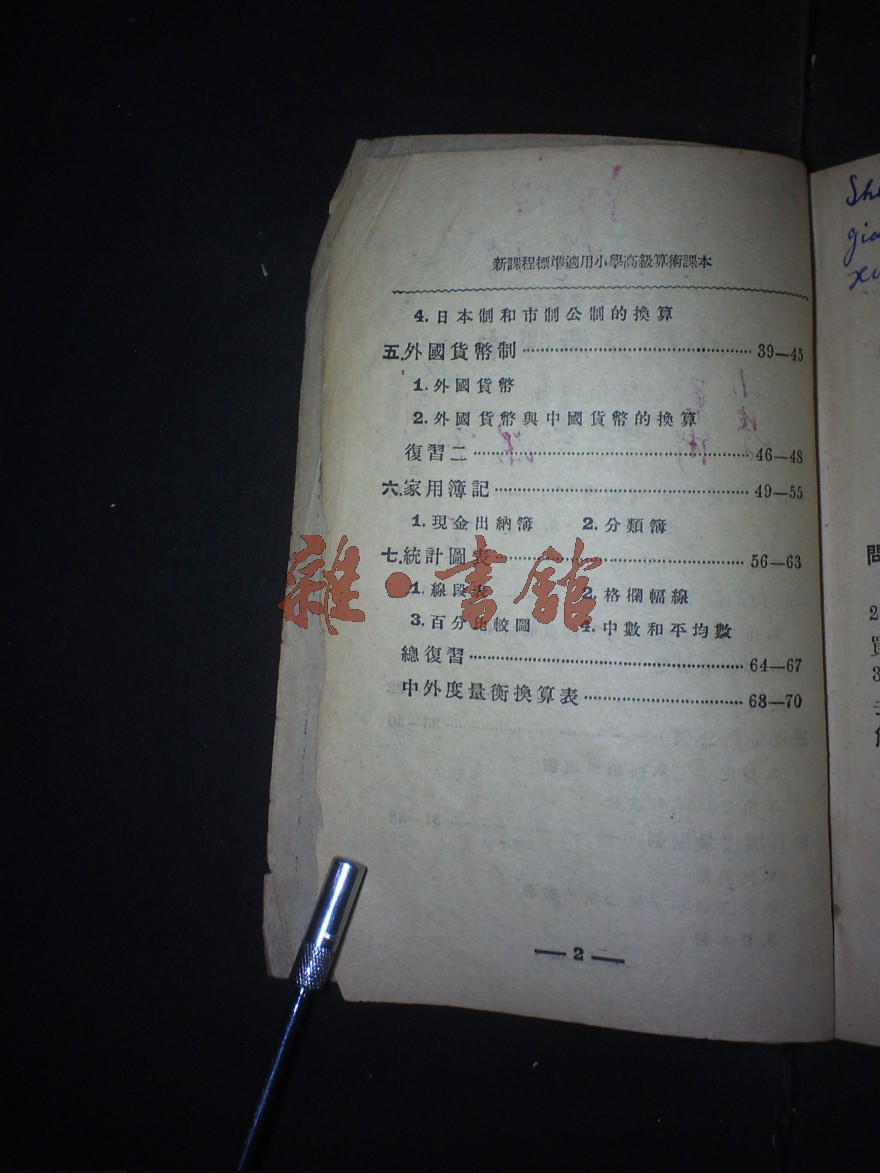 新課程標準適用小學高級算術課本
4. 日本制和市制公制的換算
五. 外國貨幣制 39—45
1. 外國貨幣
2. 外國貨幣與中國貨幣的換算
復習二 46—48
六. 家用簿記 49—55
1. 現金出納簿 2. 分類簿
七. 統計圖表 56—63
1. 線段表 2. 格欄幅線
3. 百分比較圖 4. 中數和平均數
總復習 64—67
中外度量衡換算表 68—70
— 2 —
雜·書館